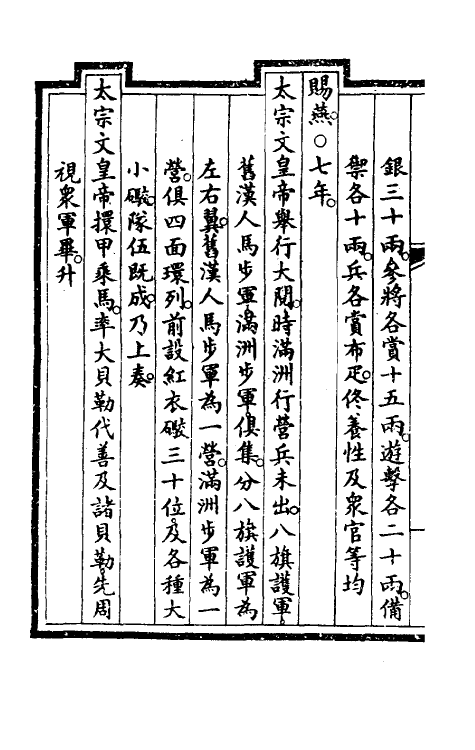 銀三十兩。參將各賞十五兩。遊擊各二十兩。備
禦各十兩。兵各賞布疋。佟養性及衆官等均
賜燕。○七年。
太宗文皇帝舉行大閱。時滿洲行營兵未出。八旗護軍。
舊漢人馬步軍。滿洲步軍。俱集。分八旗護軍為
左右翼。舊漢人馬步軍為一營。滿洲步軍為一
營。俱四面環列。前設紅衣礮三十位。及各種大
小礮。隊伍既成。乃上奏。
太宗文皇帝擐甲乘馬。率大貝勒代善及諸貝勒。先周
視衆軍畢。升